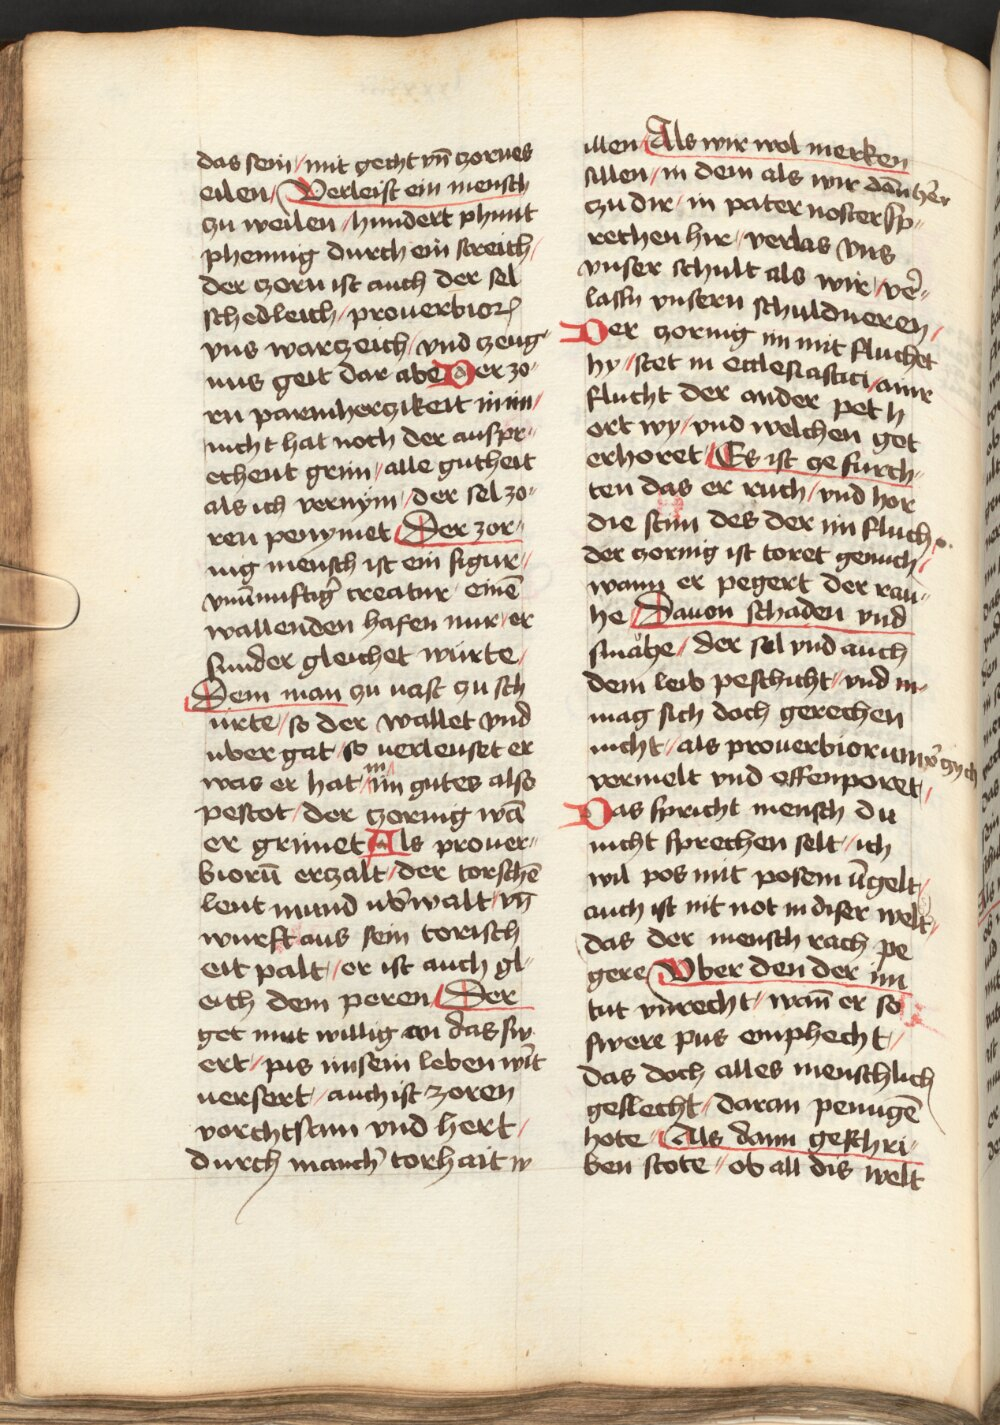 das sein / mit gecht vn̄ zornes
eilen / Verleist ein mensch
zu weilen / hundert phunt
phennig durch ein streich /
der zorn ist auch der sel
schedleich / prouerbior
vns warzeich / vnd zeug-
nus geit dar abe Der zo-
rn parmherzikeit in im /
nicht hat noch der auspr-
echent grim / alle gutheit
als ich vernym / der sel zo-
ren penymet / Der zor-
nig mensch ist ein figur /
vnūnuftig creatur / einē
wallenden hafen nur / er
sunder gleichet würte /
Dem man zu vast zu sch
ürte / so der wallet vnd
uber gat / so verleuset er
was er hat / im gutes also
pestot / der zornig wā
er grimet Als prouer-
biorū erzalt / der torschē
leut mund ub̄walt / vn̄
wurft aus sein torisch
eit palt / er ist auch gl-
eich dem peren / Der
get mut willig an das sw-
ert / pis im sein leben wirt
versert / auch ist zoren
vorchtsam vnd hert /
durch manch torhait w
illen / Als wir wol merken
süllen / in dem als wir dan h̄er
zu dir / in pater noster sp-
rechen hir / verlas vns
vnser schult als wir / ver-
lassn vnsern schuldneren /
Der zornig im mit fluchet
hy / stet in ecclesiastici / ainr
flucht der ander pet h
ort wy / vnd welchen get
erhoret / Es ist ze furch-
ten das er ruch / vnd hor
die stim des der im fluch
der zornig ist toret genuch /
wann er pegert der rau-
he / Dauon schaden vnd
smahe / der sel vnd auch
dem leib peschicht / vnd in-
mag sich doch gerechen
nicht / als prouerbiorum
vermelt vnd offenporet /
Das spricht mensch du
nicht sprechen selt / ich
wil pos mit posem ūgelt /
auch ist nit not in diser welt /
das der mensch rach pe
gere / Vber den der im
tut vnrecht / wan̄ er so
swere pus emphecht /
das doch alles menschlich
geslecht / daran penugē
hote / Als dann geschri-
ben stote / ob all dis welt